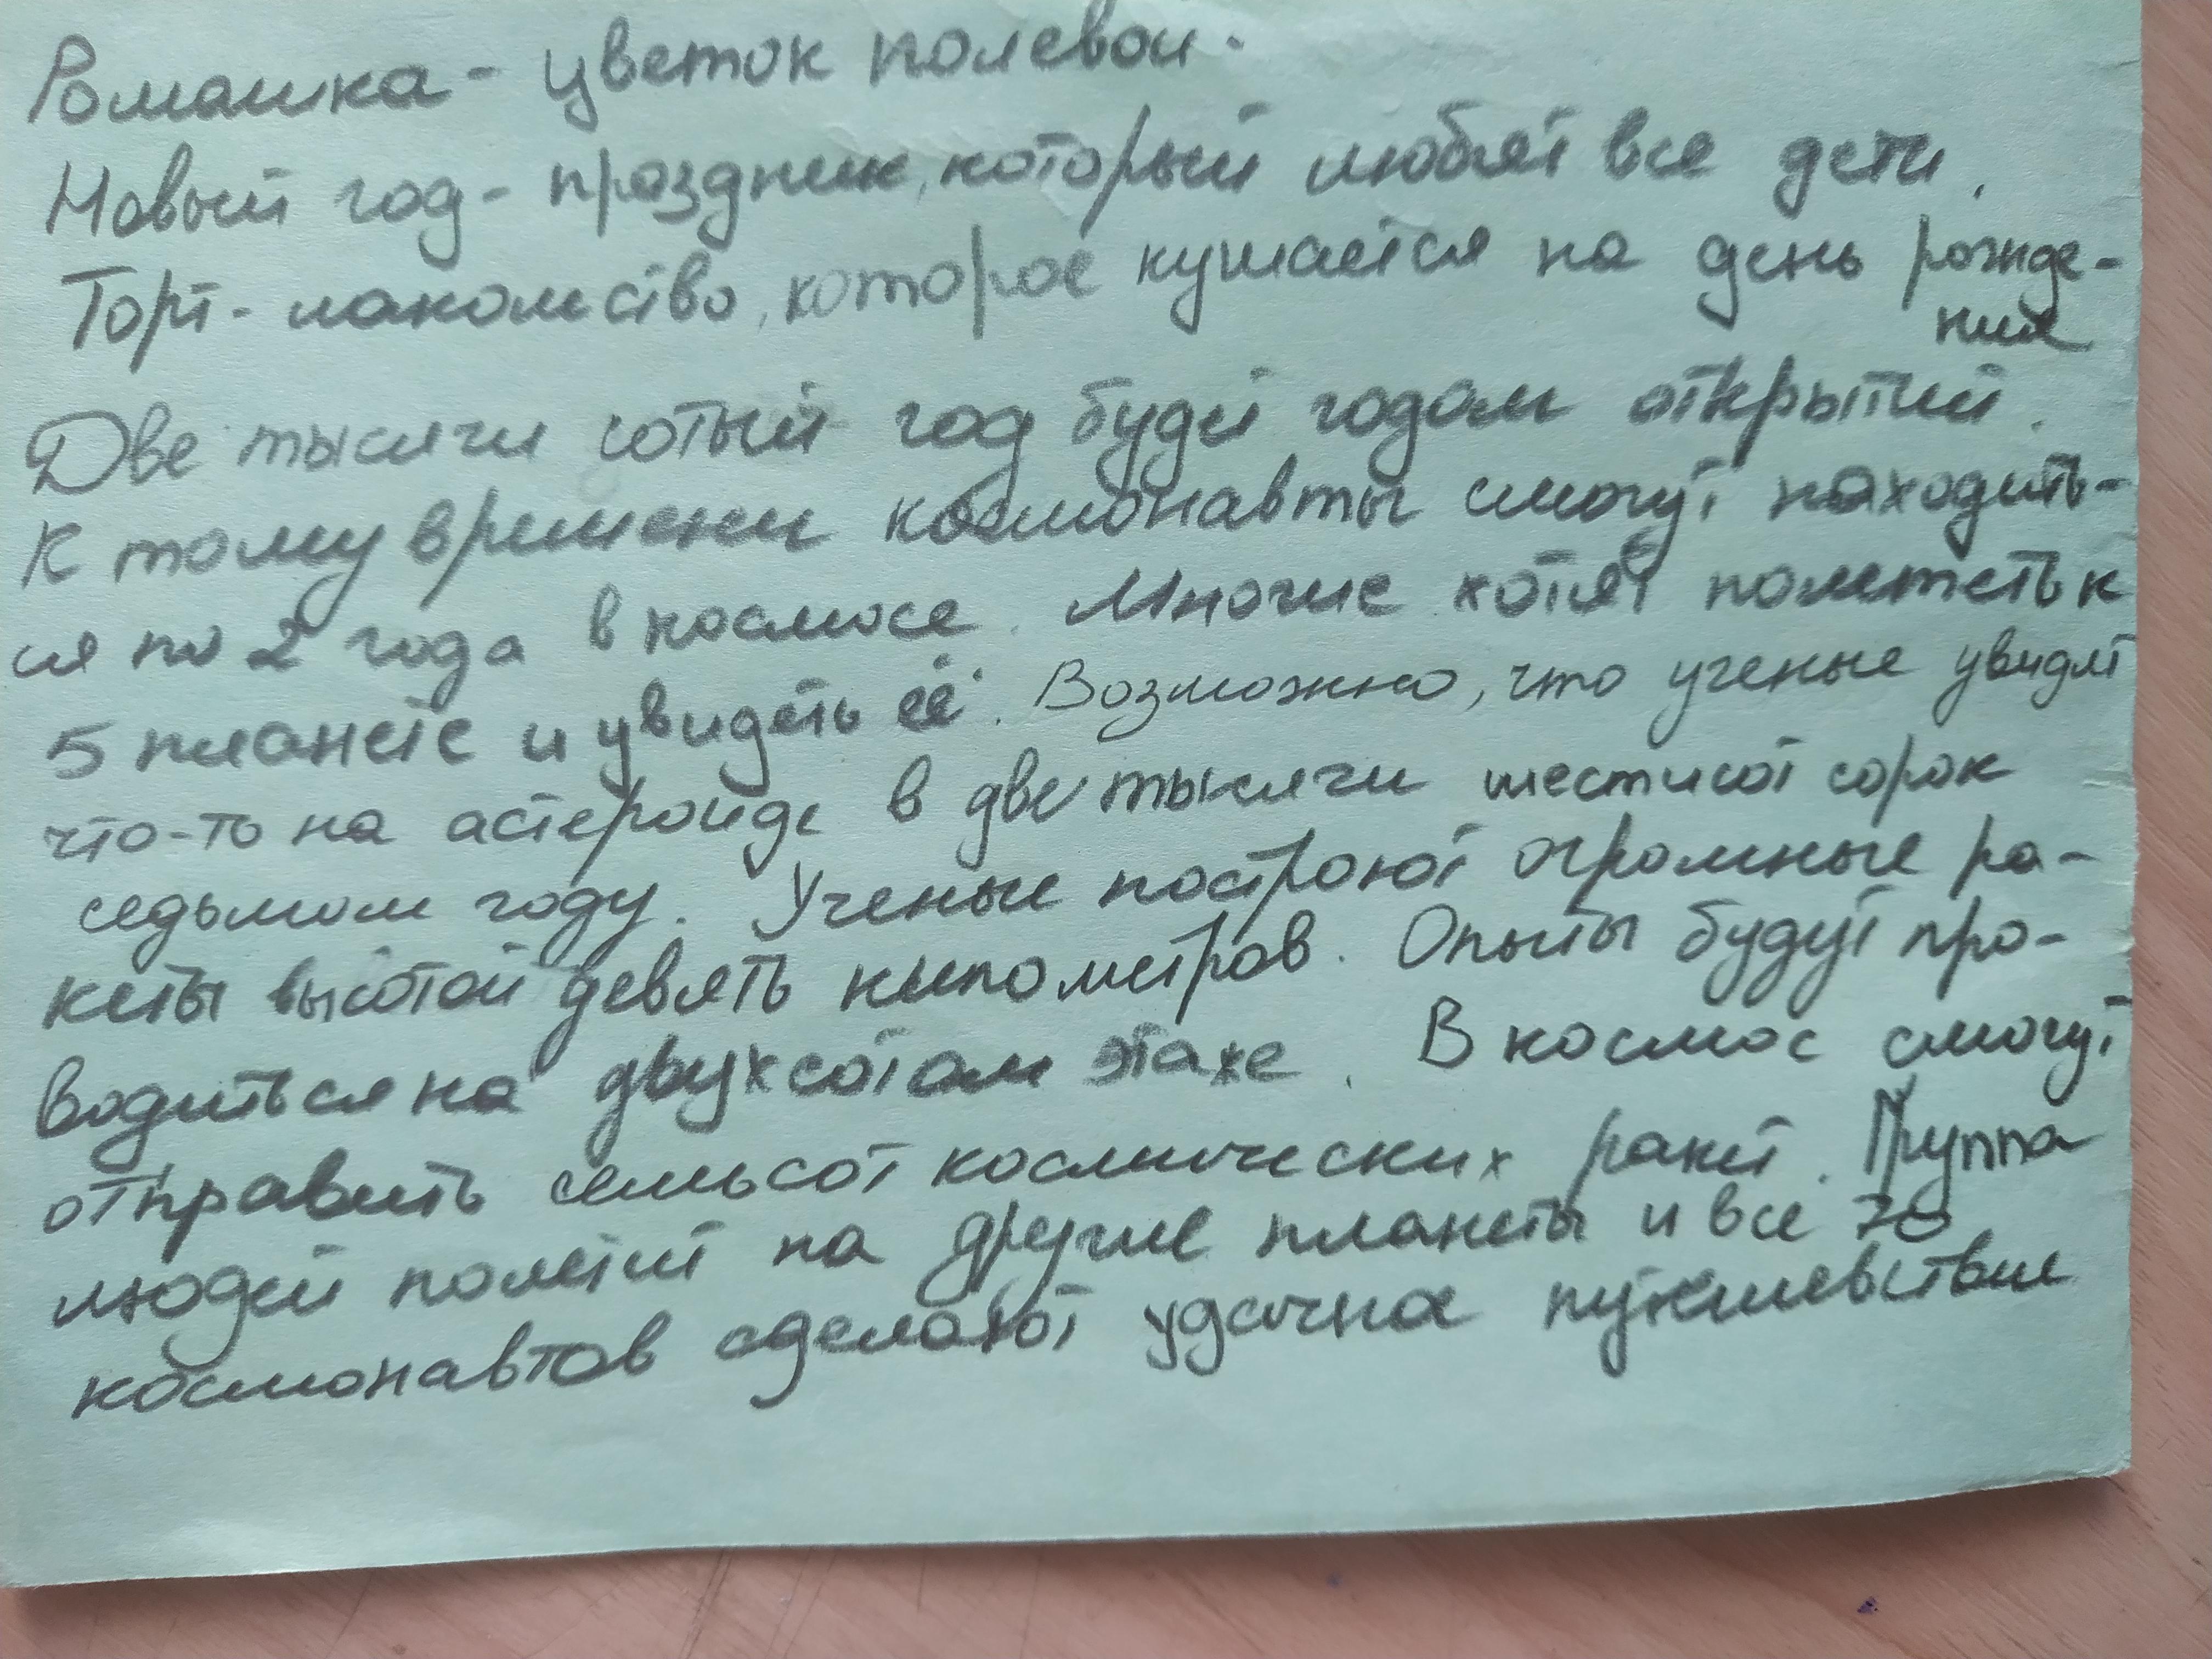 Ромашка - цветок полевой.
Новый год - праздник, который любят все дети.
Торт - лакомство, которое кушается на день рожде-
ния
Две тысячи сотый год будет годом открытий.
К тому времени космонавты смогут находить-
ся по 2 года в космосе. Многие хотят полететь к
5 планете и увидеть её. Возможно, что ученые увидят
что-то на астероиде в две тысячи шестисот сорок
седьмом году. Ученые построют огромные ра-
кеты высотой девять километров. Опыты будут про-
водиться на двухсотом этаже. В космос смогут
отправить семьсот космических ракет. Группа
людей полетит на другие планеты и все 70
космонавтов сделают удачное путешевствие